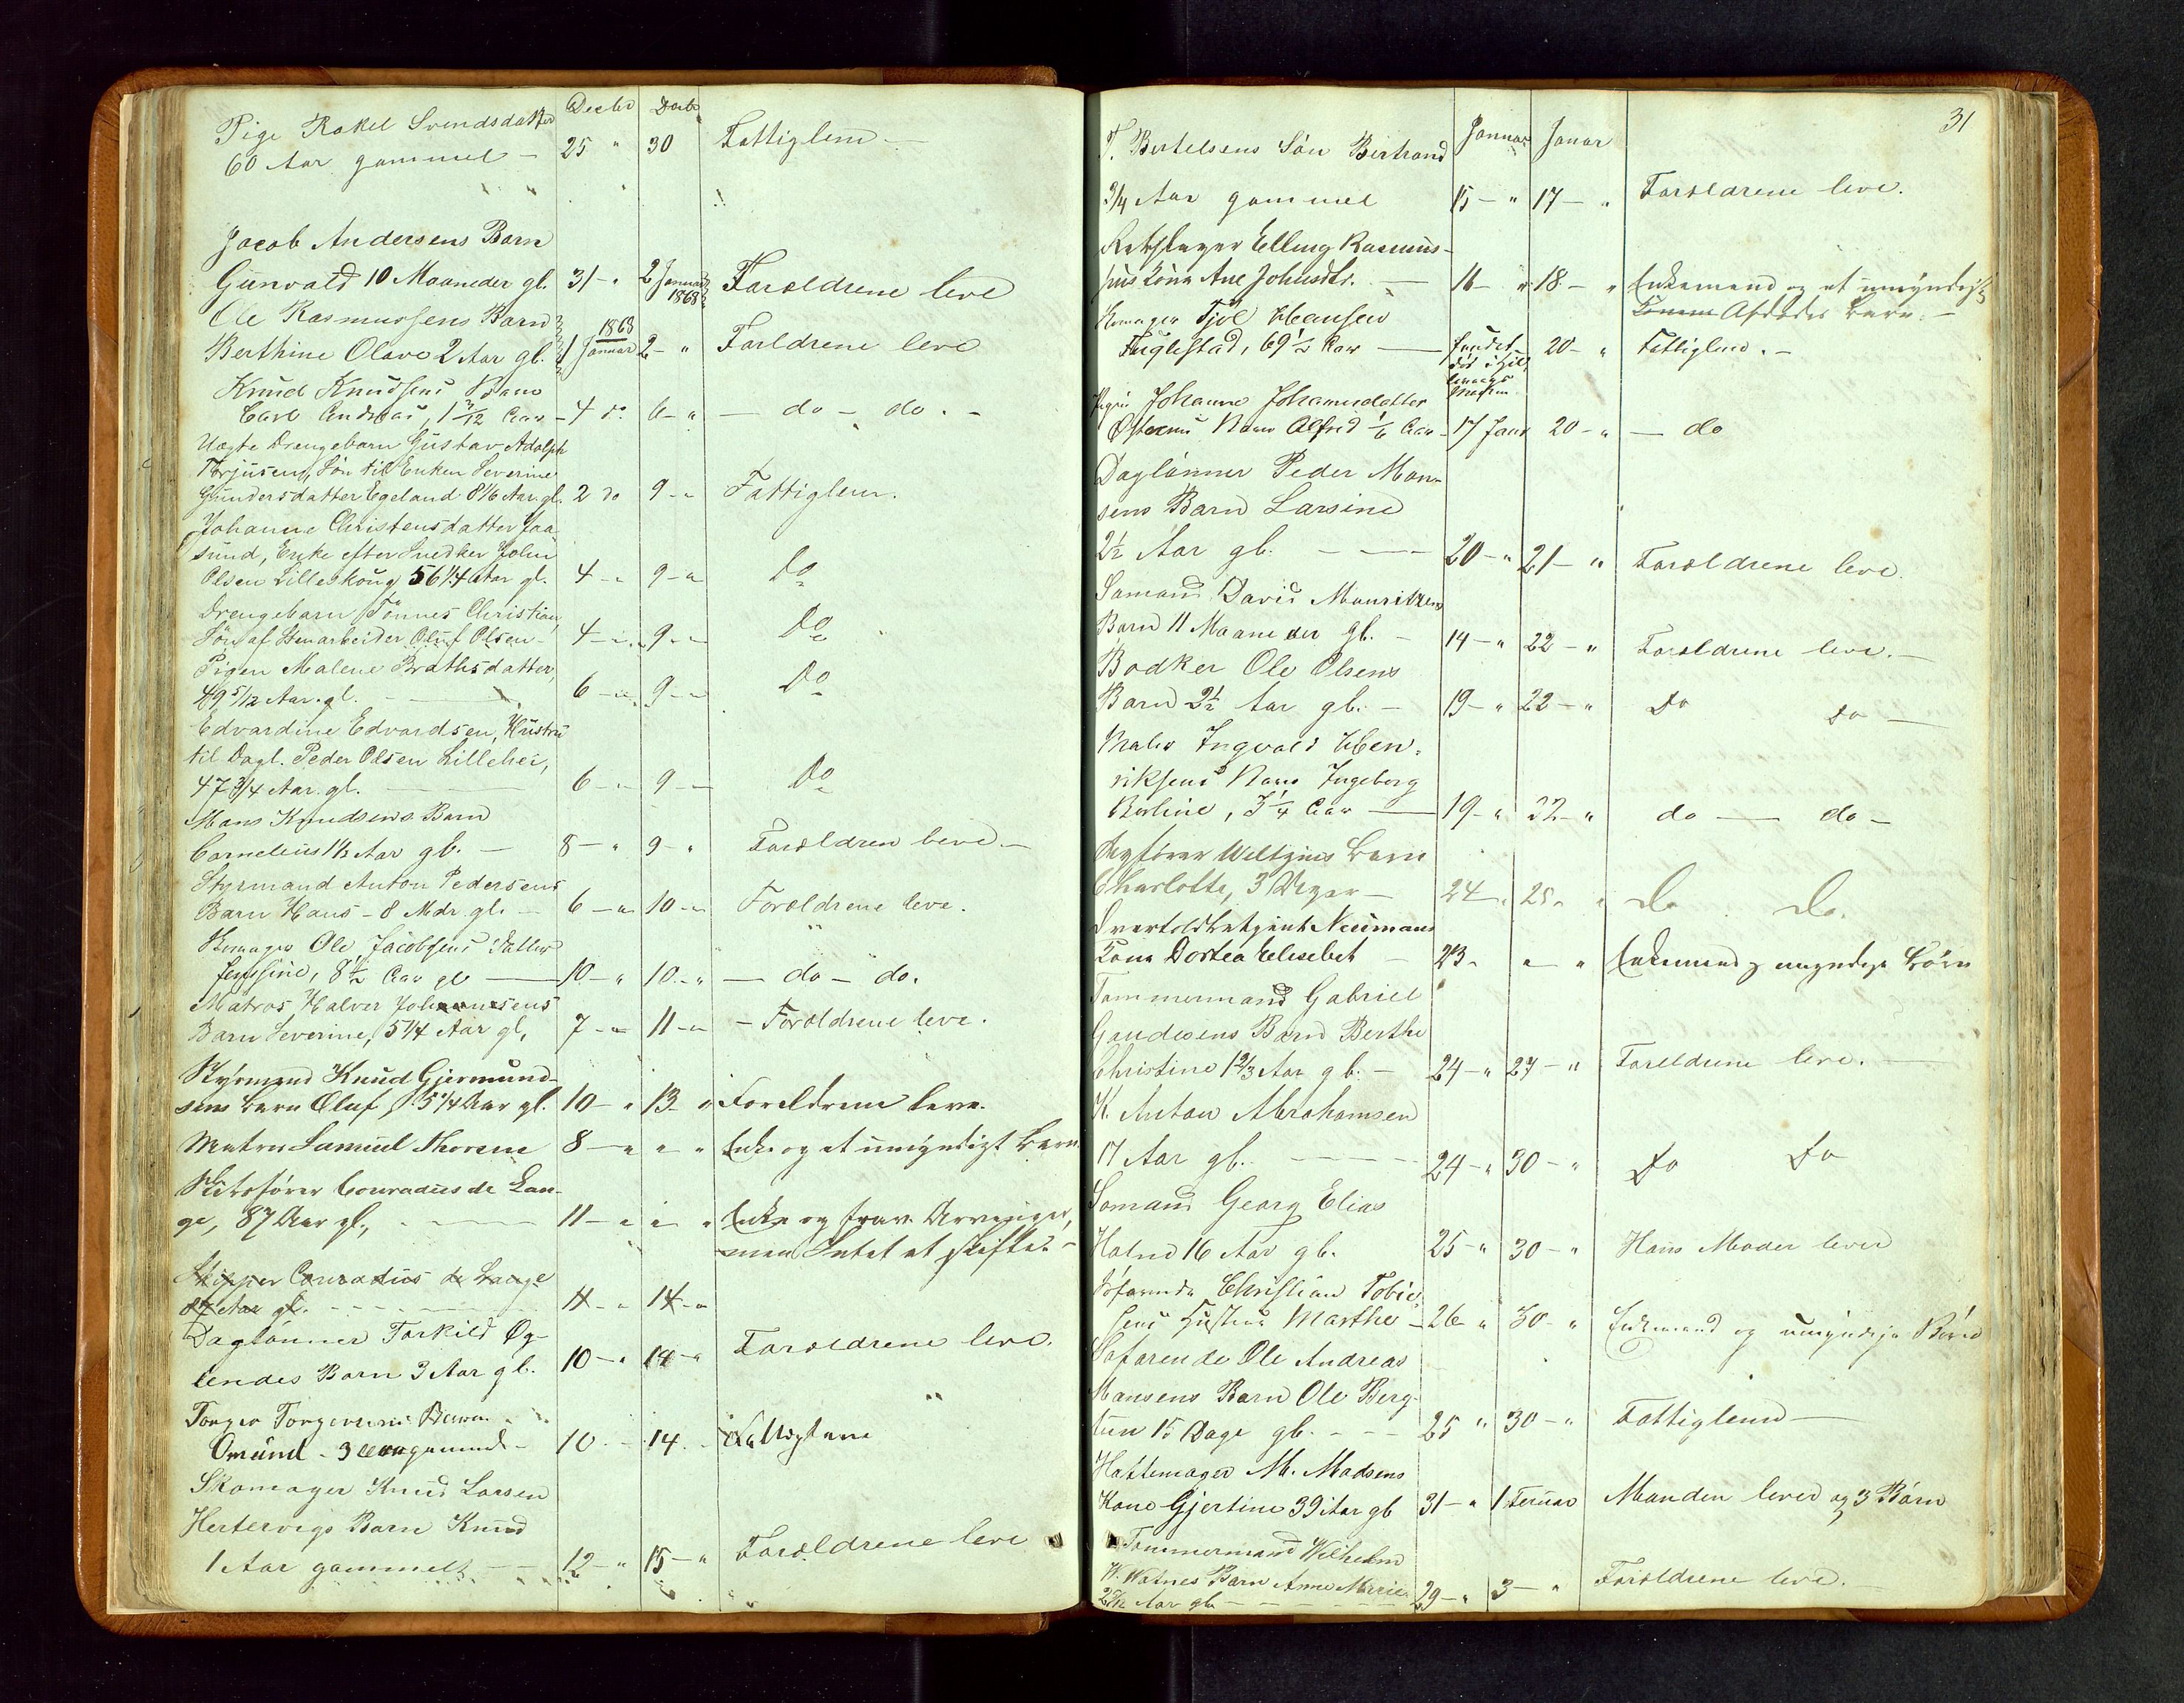 Decbr Decbr
Pige Rakel Svendsdatter
60 Aar gammel — 25 " 30 Fattiglem —
Jacob Andersens Barn
Gunvald 10 Maaneder gl. 31 - " 2 Januar 1868 Forældrene leve
Ole Rasmussens Barn 1868
Berthine Olave 2 Aar gl. 1 Januar 2 - " Forldrene leve
Knud Knudsens Barn
Carl Andreas, 1 3/12 Aar - 4 do 6 - " — do — do. -
Uægte Drengebarn Gustav Adolph
Torjusen, Sön til Enken Severine
Gundersdatter Egeland 8 1/6 Aar. gl. 2 do 9 - " Fattiglem.
Johanne Christensdatter Jaa
sund, Enke efter Snedker John
Olsen Lilleskoug 56 1/4 Aar gl. 4 - " 9 - " Do
Drengebarn Tönnes Christian,
Sön af Stenarbeider Oluf Olsen - 4 - " 9 - " Do
Pigen Malene Brathsdatter,
49 5/12 Aar. gl. — 6 - " 9 - " Do
Edvardine Edvardsen, Hustru
til Dagl. Peder Olsen Lillehei,
47 3/4 Aar. gl. — 6 - " 9 - " Do
Hans Knudsens Barn
Cornelius 1 1/2 Aar gl. — 8 - " 9 - " Forældren leve. —
Styrmand Anton Pedersens
Barn Hans - 8 Mdr. gl. — 6 - " 10 - " Forældrene leve.
Skomager Ole Jacobsens Datter
Jenssine, 8 1/2 Aar gl — 10 - " 10 - " — do — do.
Matros Halvor Johannesens
Barn Severine, 5 1/4 Aar gl, 7 - " 11 - " - Forældrene leve.
Styrmand Knud Gjermund-
sens Barn Oluf, 5 1/4 Aar gl. 10 - " 13 - " Forældrene leve.
Matros Samuel Thorsen 8 - " " " Enke og et umyndigt Barn.
Skibsfører Conradus de Lan-
ge, 87 Aar gl., — 11 - " " " Enke og frav. Arvinger,
men Intet at skifte. —
Skipper Conradus de Lange
87 Aar gl. - - - 11 - " 14 - "
Daglönner Torkild Øg-
lendes Barn 3 Aar gl. 10 - " 14 - " Forældrene leve.
Torger Torgersens Barn
Omund - 3 Aar gammel - 10 - 14. - Fattiglem
Skomager Knud Larsen
Hertervigs Barn Knud
1 Aar gammelt — 12 - " 15 - " Forældrene leve
31
Januar Januar
T. Bertelsens Sön Bertrand
3/4 Aar gammel 15 - " 17 - " Forældrene leve.
Rebslager Elling Rasmus-
sens Kone Ane Johnsdtr. — 16 - " 18 - " Enkemand og et umyndigt
Konens Afdødes Barn. —
Skomager Tjöl Hansen
Fuglestad, 69 1/2 Aar — fundet 20 - " Fattiglem. -
Pigen Johanne Johannesdatter
Østernes Barn Alfred 1/6 Aar - 17 Janr 20 - " — do
Daglönner Peder Mon-
sens Barn Larsine
2 1/2 Aar gl. — 20 - " 21 - " Forældrene leve.
Sömand David Mauritzens
Barn 11 Maaneder gl. - 14 - " 22 - " Forældrene leve. —
Bødker Ole Olsens
Barn 2 1/2 Aar gl. — 19 - " 22 - " Do Do —
Maler Ingvald Hen-
riksens Barn Ingeborg
Berline, 3 1/4 Aar — 19 - " 22 - " do — do -
Byfører Weltzins Barn
Charlotte, 3 Uger — 24 - " 25 - " Do Do.
Overtoldbetjent Neumans
Kone Dortea Elisebet — 23 - " " Enkemand og umyndige Börn
Tømmermand Gabriel
Gaudesens Barn Berthe
Christine 1 2/3 Aar gl. — 24 - " 27 - " Forældrene leve. —
K. Anton Abrahamsen
17 Aar gl. — 24 - " 30 - " Do Do
Sömand Georg Elias
Holm 16 Aar gl. 25 - " 30 - " Hans Moder lever
Söfarende Christian Tobia-
sens Hustru Marthe — 26 " 30 - " Enkemand og umyndige Börn
Söfarende Ole Andreas
Hansens Barn Ole Berg-
tun 15 Dage gl. - - - 25 " 30 - " Fattiglem —
Hattemager M. Madsens
Kone Gjertine 39 Aar gl 31 - " 1 Feruar Manden lever og 3 Börn
Tømmermand Wilhelm
W. Watnes Barn Anne Marie
Aar gl — 29 - " 3 - " Forældrene leve.